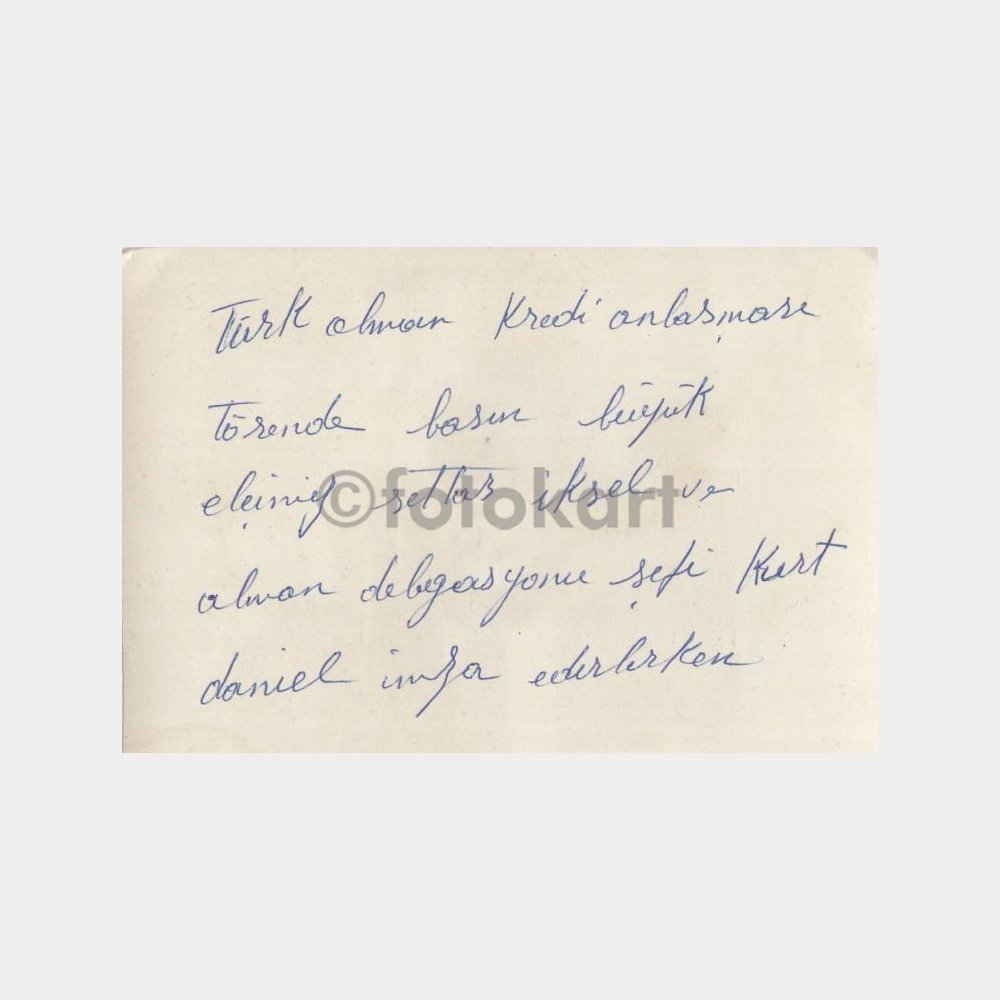 Türk alman kredi anlaşması
törende basın büyük
elçimiz settar iksel ve
©fotokart
alman delegasyonu şefi Kurt
daniel imza ederlerken